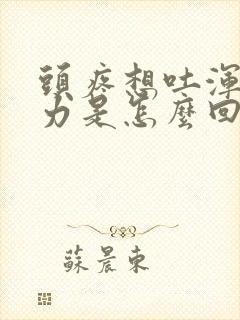 頭疼想吐渾
力是怎麼回
蘇晨東